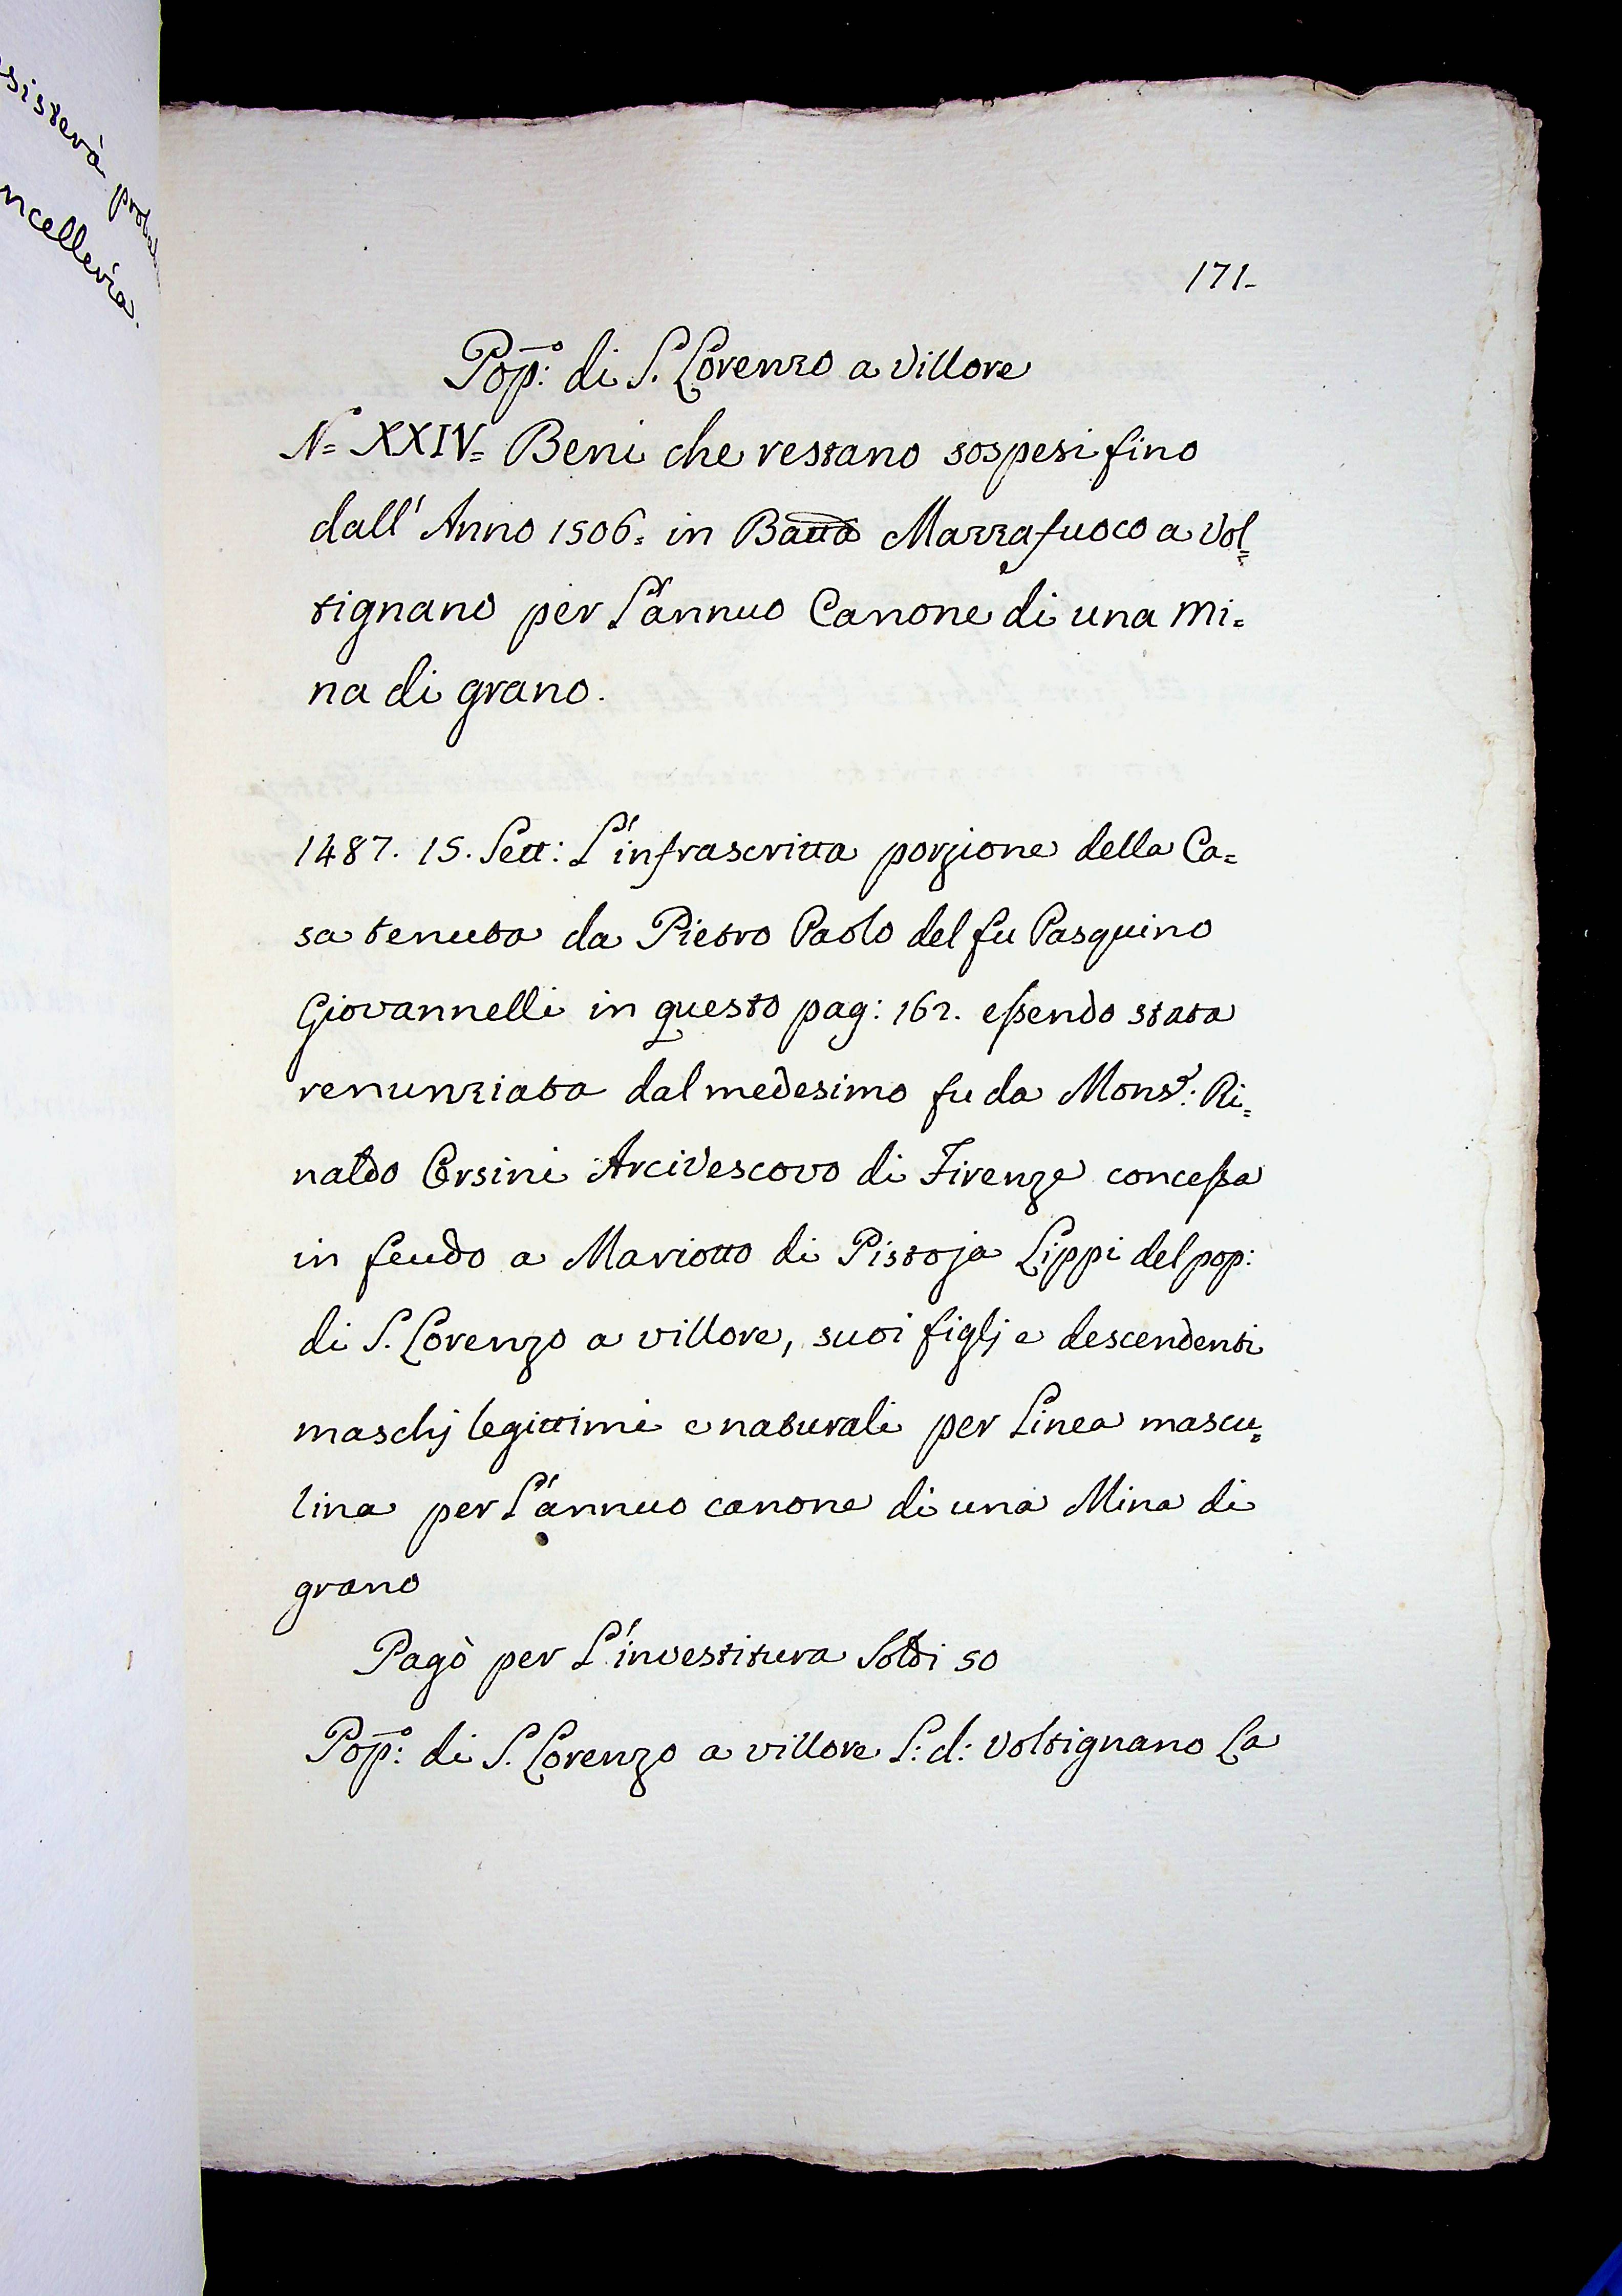 sisterà proba
ncelleria.
171-
Pop:º di S. Lorenzo a Villore
N= XXIV= Beni che restano sospesi fino
dall' Anno 1506= in Batta Mazzafuoco a Vol=
tignano per L'annuo Canone di una Mi=
na di grano.
1487. 15. Sett: L'infrascritta porzione della Ca=
sa tenuta da Pietro Paolo del fu Pasquino
Giovannelli in questo pag: 162. essendo stata
renunziata dal medesimo fu da Monsr: Ri=
naldo Orsini Arcivescovo di Firenze concessa
in feudo a Mariotto di Pistoja Lippi del pop:
di S. Lorenzo a villore, suoi figlj e descendenti
maschj legittimi e naturali per Linea mascu=
lina per L'annuo canone di una Mina di
grano
Pagò per L'investitura Soldi 50
Pop:º di S. Lorenzo a villore L: d: Voltignano La